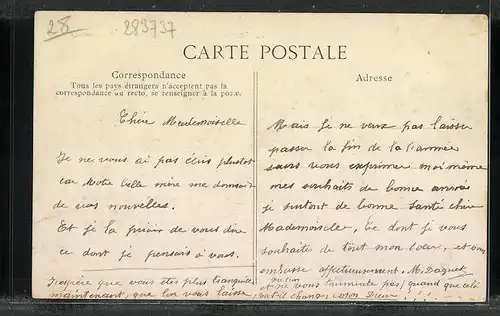 28
289737
CARTE POSTALE
Correspondance
Tous les pays étrangers n'acceptent pas la
correspondance au recto, se renseigner à la poste.
Chère Mademoiselle
Je ne vous ai pas écris plustot
car Votre belle mère me donnait
de vos nouvelles.
Et je la priais de vous dire
ce dont je pensais à vous.
J'espère que vous êtes plus tranquille
maintenant, que l'on vous laisse,
Adresse
Mais je ne veux pas laisser
passer la fin de l'année
sans vous exprimer moi même
mes souhaits de bonne année
je surtout de bonne santé chère
Mademoiselle, Ce dont je vous
souhaites de tout mon cœur, et vous
embrasse affectueusement. M. Daquet
et ne vous tourmente pas quand que cela
changer mon Dieu